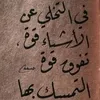 في التخلي عن
الأشياء قوة
تفوق قوة
التمسك بها